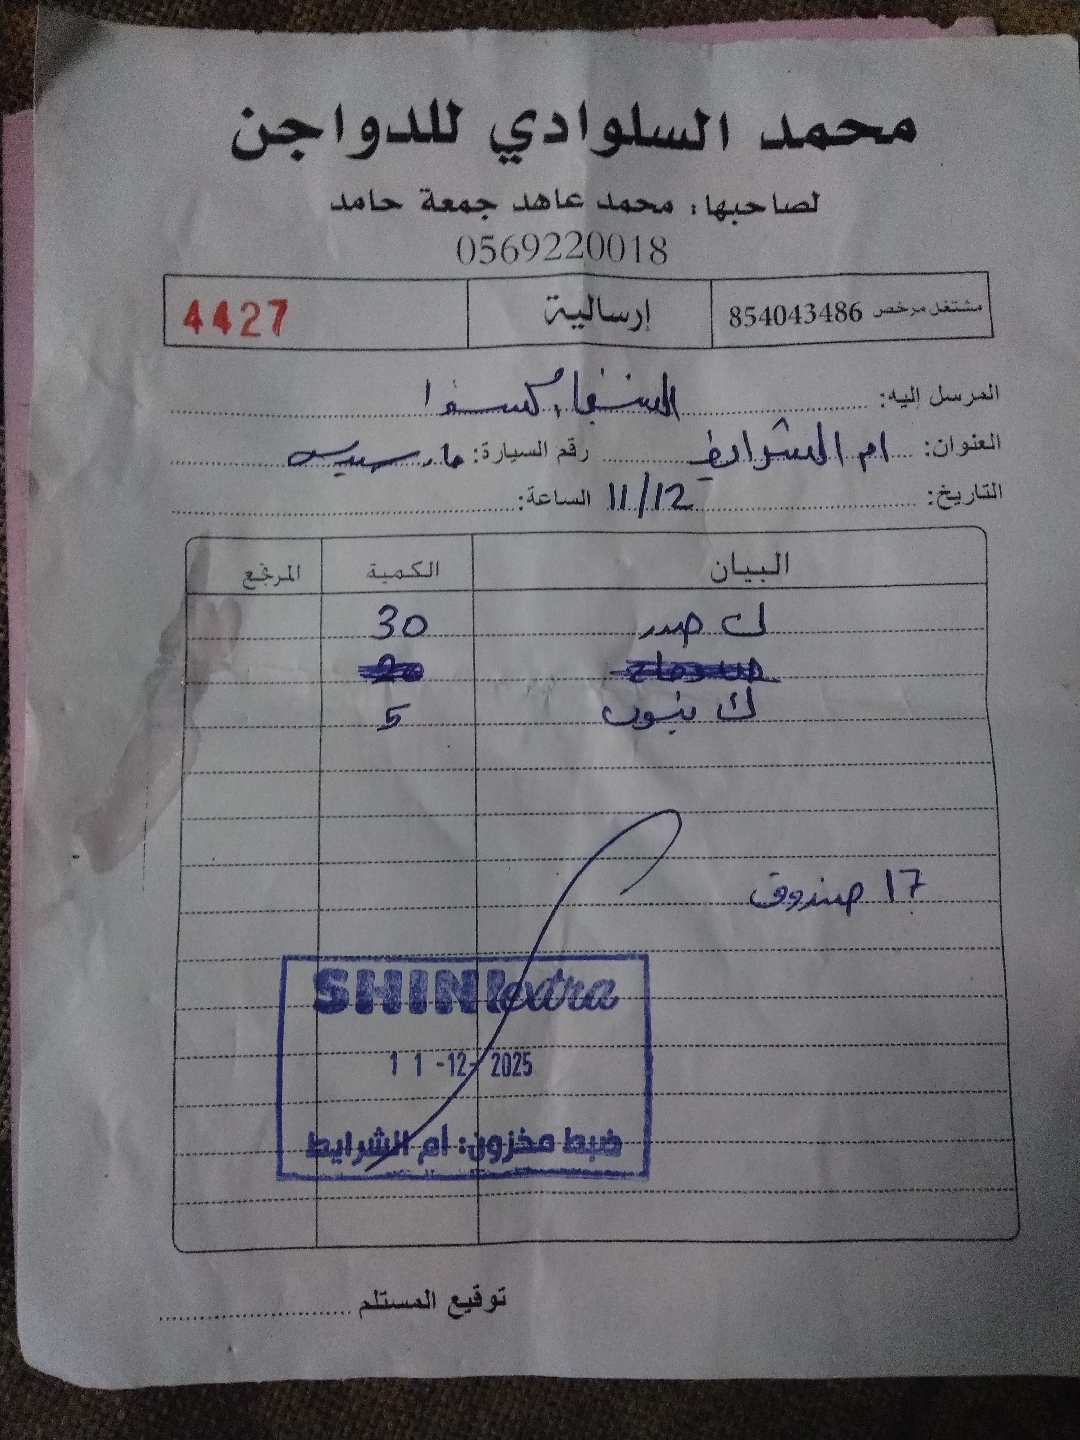 محمد السلوادي للدواجن
لصاحبها: محمد عاهد جمعة حامد
0569220018
مشتغل مرخص 854043486 إرسالية 4427
المرسل إليه: الشني اكسترا
العنوان: ام الشرايط رقم السيارة: مارسيدس
التاريخ: 11/12 الساعة:
البيان الكمية المرتجع
ك صدر 30
ك 5
17 صندوق
SHINI extra
11-12-2025
ضبط مخزون: أم الشرايط
توقيع المستلم